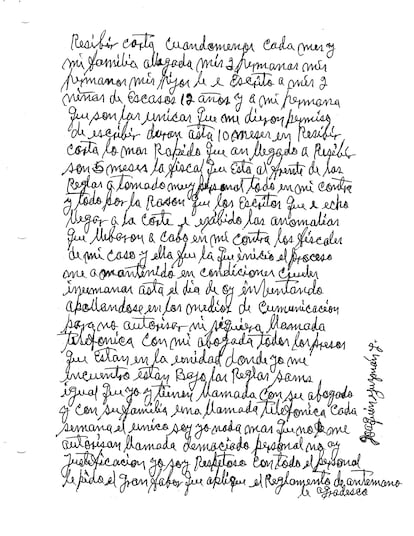 Resibir carta cuandomenos cada mes y
mi familia allegada mis 3 hermanas mis
hermanos mis hijos le e Escrito a mis 2
niñas de Escasos 12 años y a mi hermana
que son las unicas que me dieron permiso
de escribir duran asta 10 meses en Resibir
carta lo mas Rapido que an llegado a Resibir
son 5 meses la fiscal que Está al frente de las
Reglas a tomado muy personal todo en mi contra
y todo por la Rason que los Escritos que e echo
llegar a la corte e exibido las anomalias
que lleboron a cabo en mi contra los fiscales
de mi caso y ella fue la que inicio el proceso
me a mantenido en condiciones crueles
inumanas asta el dia de oy inbentando
apollandose en los medios de Comunicación
para no autorisar ni siquiera llamada
telefonica con mi abogada todos los presos
que Estan en la unidad donde yo me
encuentro estan Bajo las Reglas sams
igual que yo y tienen llamada con su abogado
y con su familia una llamada telefonica cada
semana el unico soy yo nada mas que no me
autorisan llamada demaciado personal no ay
justificacion yo soy Respetoso con todo el personal
le pido el Gran fabor que aplique el Reglamento de antemano
le agradesco
Joaquin Guzmán L.